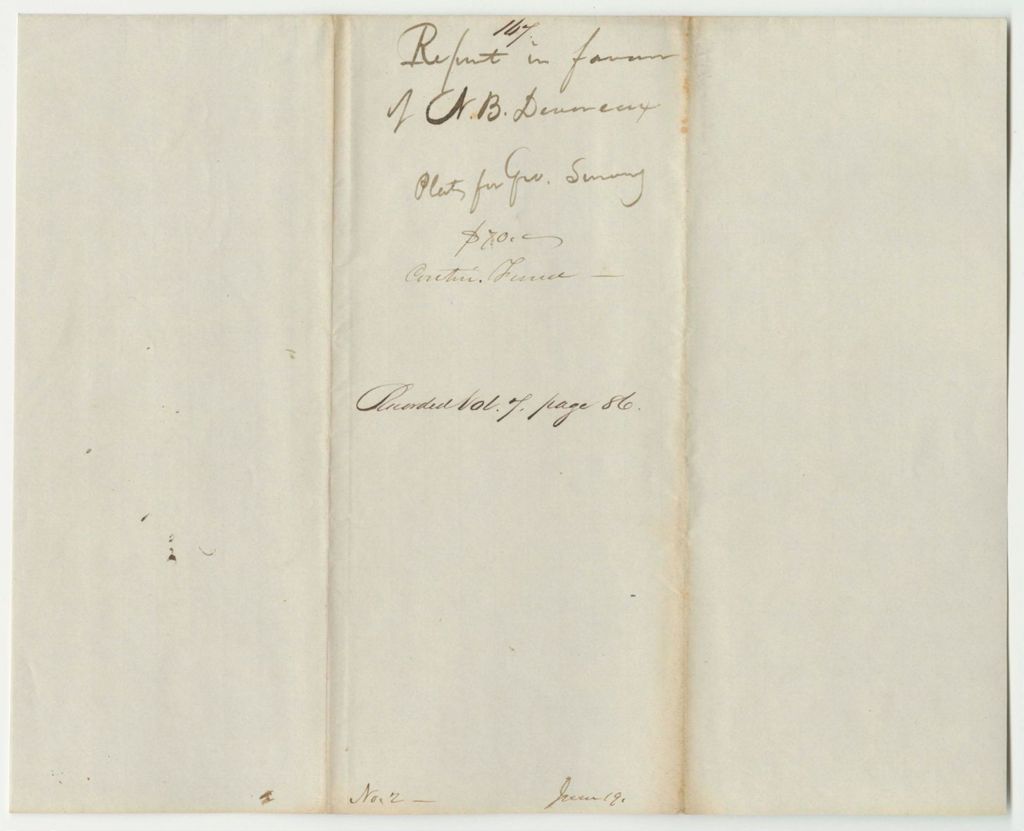 167
Report in favour
of N.B. Devereux
Plats for Geo. Survey
$70.
Contin. Fund —
Recorded Vol. 7, page 86.
No. 2 —
June 19.